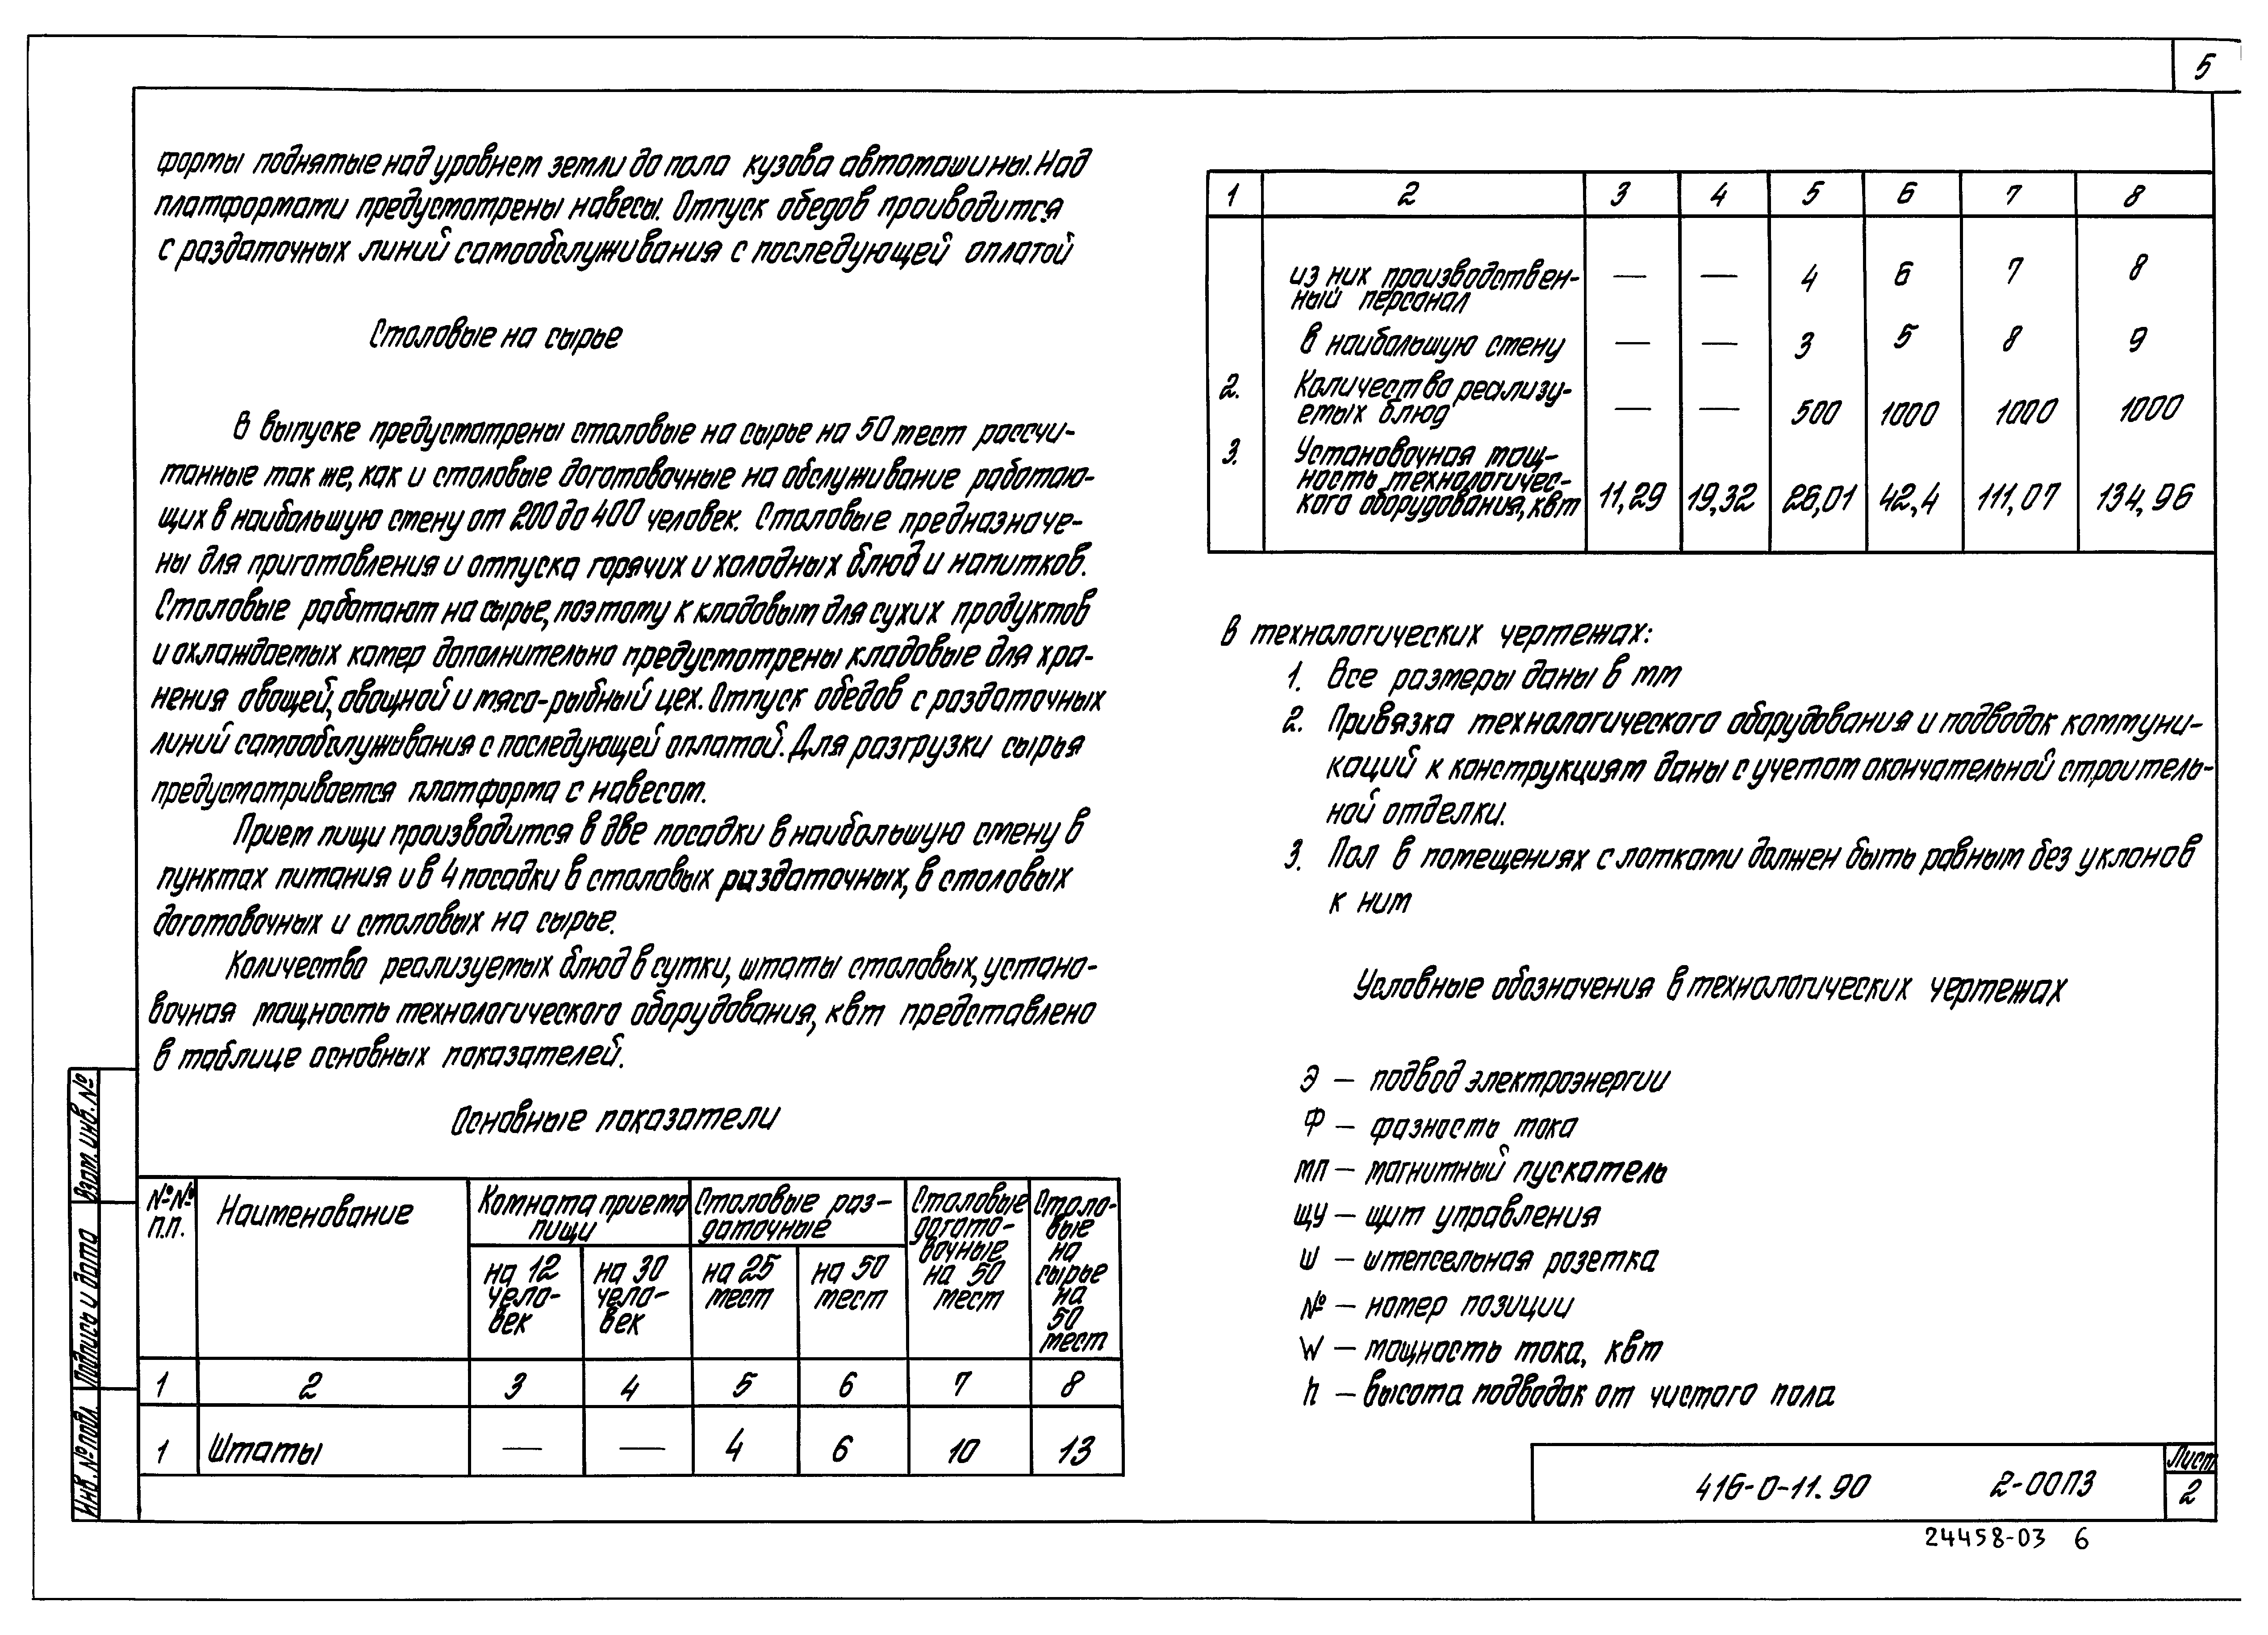 5
формы поднятые над уровнем земли до пола кузова автомашины. Над
платформами предусмотрены навесы. Отпуск обедов проиводится
с раздаточных линий самообслуживания с последующей оплатой
Столовые на сырье
В выпуске предусмотрены столовые на сырье на 50 мест рассчи-
танные так же, как и столовые доготовочные на обслуживание работаю-
щих в наибольшую смену от 200 до 400 человек. Столовые предназначе-
ны для приготовления и отпуска горячих и холодных блюд и напитков.
Столовые работают на сырье, поэтому к кладовым для сухих продуктов
и охлаждаемых камер дополнительно предусмотрены кладовые для хра-
нения овощей, овощной и мясо-рыбный цех. Отпуск обедов с раздаточных
линий самообслуживания с последующей оплатой. Для разгрузки сырья
предусматривается платформа с навесом.
Прием пищи производится в две посадки в наибольшую смену в
пунктах питания и в 4 посадки в столовых раздаточных, в столовых
доготовочных и столовых на сырье.
Количество реализуемых блюд в сутки, штаты столовых, устано-
вочная мощность технологического оборудования, квт представлено
в таблице основных показателей.
Основные показатели
№№ п.п. Наименование Комната приема пищи Столовые раз- даточные Столовые догото- вочные на 50 мест Столо- вые на сырье на 50 мест
на 12 чело- век на 30 чело- век на 25 мест на 50 мест
1 2 3 4 5 6 7 8
1 Штаты — — 4 6 10 13
1 2 3 4 5 6 7 8
из них производствен-
ный персонал — — 4 6 7 8
в наибольшую смену — — 3 5 8 9
2. Количество реализу-
емых блюд — — 500 1000 1000 1000
3. Установочная мощ-
ность технологичес-
кого оборудования, квт 11,29 19,32 26,01 42,4 111,07 134,96
В технологических чертежах:
1. Все размеры даны в мм
2. Привязка технологического оборудования и подводок коммуни-
каций к конструкциям даны с учетом окончательной строитель-
ной отделки.
3. Пол в помещениях с лотками должен быть ровным без уклонов
к ним
Условные обозначения в технологических чертежах
Э — подвод электроэнергии
Ф — фазность тока
МП — магнитный пускатель
ЩУ — щит управления
Ш — штепсельная розетка
№ — номер позиции
W — мощность тока, квт
h — высота подводок от чистого пола
Взам. инв. №
Подпись и дата
Инв. № подл
416-0-11.90 2-00ПЗ
Лист
2
24458-03 6